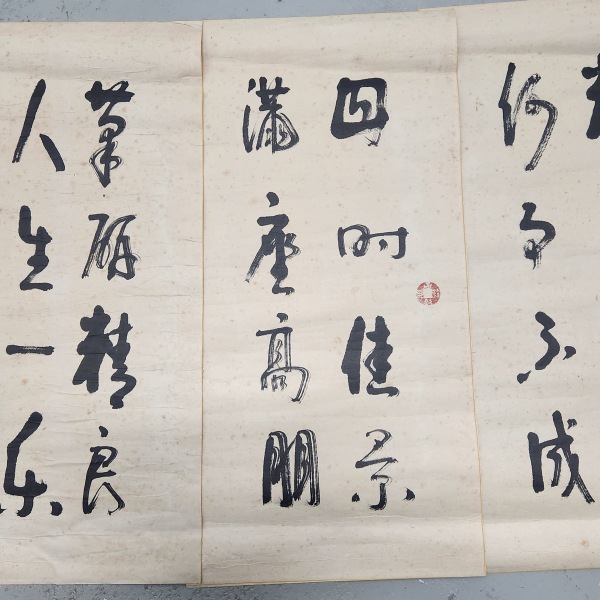 何事不成
四時佳景
滿座高朋
筆研精良
人生一樂